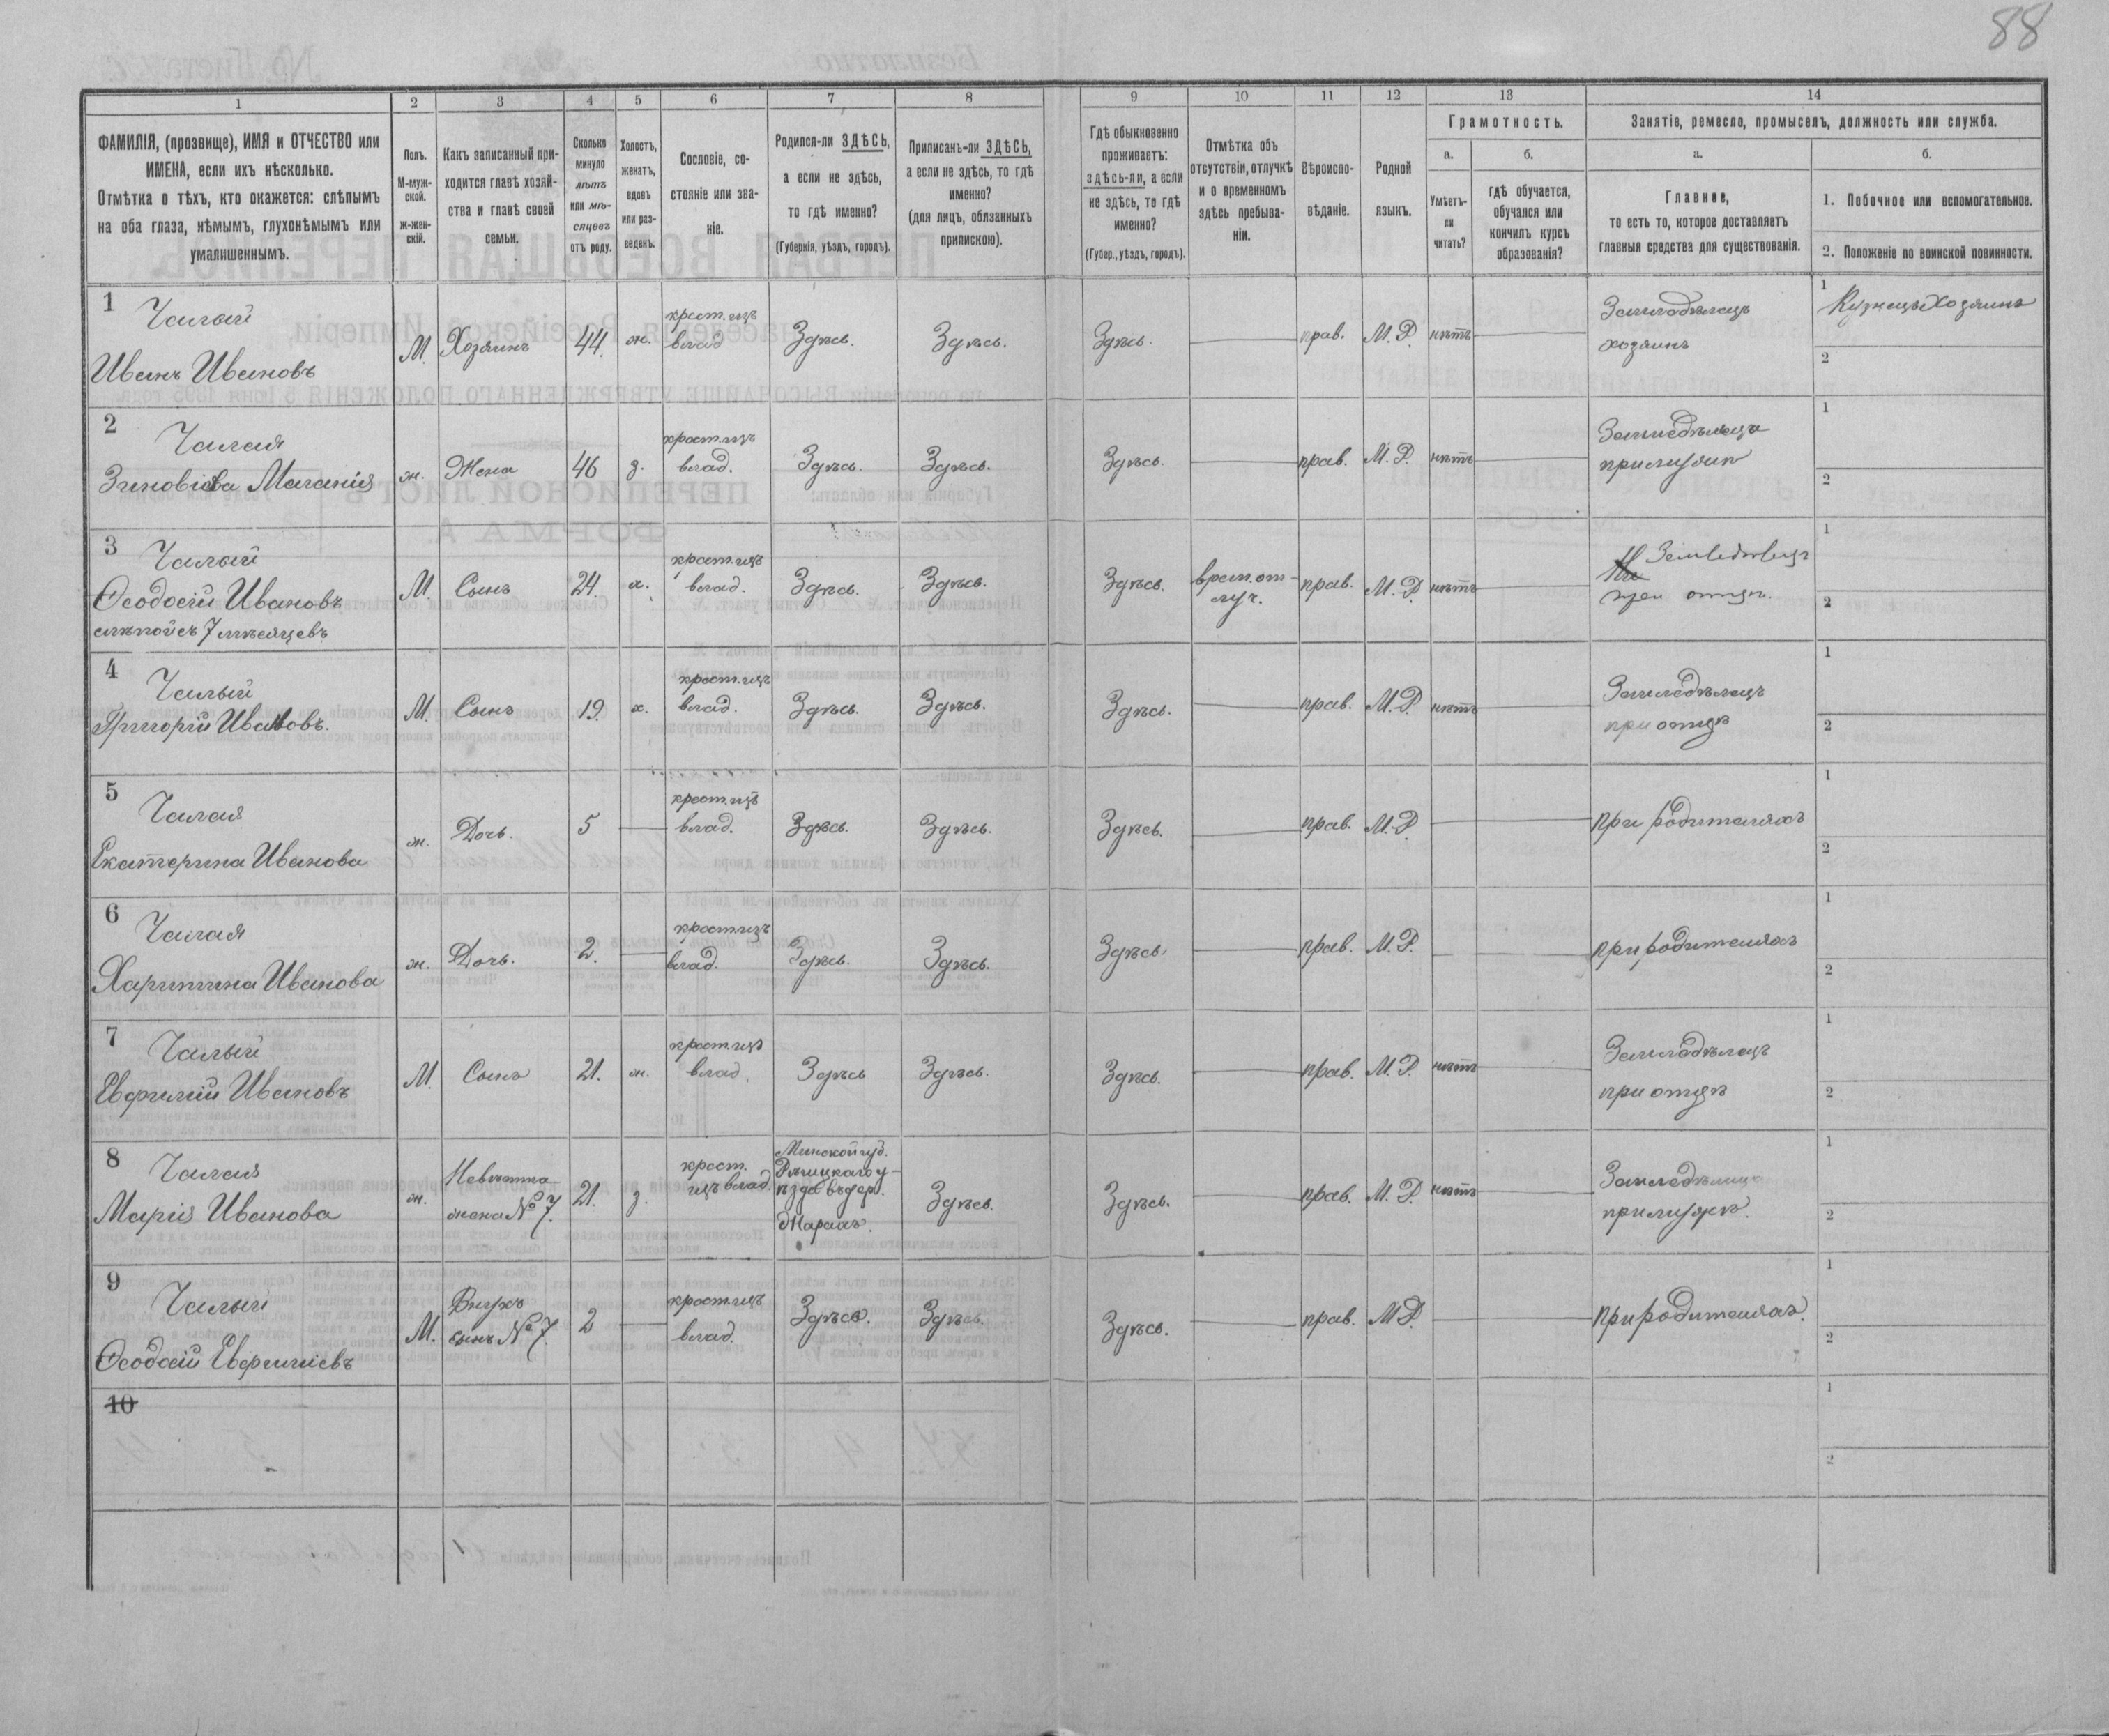 88
1 2 3 4 5 6 7 8 9 10 11 12 13 14
ФАМИЛІЯ, (прозвище), ИМЯ и ОТЧЕСТВО или
ИМЕНА, если ихъ нѣсколько.
Отмѣтка о тѣхъ, кто окажется: слѣпымъ
на оба глаза, нѣмымъ, глухонѣмымъ или
умалишеннымъ.
Полъ.
М-муж-
ской.
ж-жен-
скій.
Какъ записанный при-
ходится главѣ хозяй-
ства и главѣ своей
семьи.
Сколько
минуло
лѣтъ
или мѣ-
сяцевъ
отъ роду.
Холостъ,
женатъ,
вдовъ
или раз-
веденъ.
Сословіе, со-
стояніе или зва-
ніе.
Родился-ли ЗДѢСЬ,
а если не здѣсь,
то гдѣ именно?
(Губернія, уѣздъ, городъ).
Приписанъ-ли ЗДѢСЬ,
а если не здѣсь, то гдѣ
именно?
(для лицъ, обязанныхъ
припискою).
Гдѣ обыкновенно
проживаетъ:
здѣсь-ли, а если
не здѣсь, то гдѣ
именно?
(Губер., уѣздъ, городъ).
Отмѣтка объ
отсутствіи, отлучкѣ
и о временномъ
здѣсь пребыва-
ніи.
Вѣроиспо-
вѣданіе.
Родной
языкъ.
Грамотность.
а.
Умѣетъ-
ли
читать?
б.
гдѣ обучается,
обучался или
кончилъ курсъ
образованія?
Занятіе, ремесло, промыселъ, должность или служба.
а.
Главное,
то есть то, которое доставляетъ
главныя средства для существованія.
б.
1. Побочное или вспомогательное.
2. Положеніе по воинской повинности.
1
Чалый
Иванъ Ивановъ
М.
Хозяинъ
44.
ж.
крест. изъ
влад
Здѣсь.
Здѣсь.
Здѣсь.
прав.
М. Р.
нѣтъ
Земледѣлецъ
хозяинъ
1
Кузнецъ Хозяинъ
2
2
Чалая
Зиновіева Маланія
ж.
Жена
46
з.
крест. изъ
влад.
Здѣсь.
Здѣсь.
Здѣсь.
прав.
М. Р.
нѣтъ
Земледѣлецъ
при мужѣ
1
2
3
Чалый
Ѳеодосій Ивановъ
слѣпой съ 7 мѣсяцевъ
М.
Сынъ
24.
х.
крест. изъ
влад.
Здѣсь.
Здѣсь.
Здѣсь.
врем. от-
луч.
прав.
М. Р.
нѣтъ
Земледѣлецъ
при отцѣ.
1
2
4
Чалый
Григорій Ивановъ.
М.
Сынъ
19.
х.
крест. изъ
влад.
Здѣсь.
Здѣсь.
Здѣсь.
прав.
М. Р.
нѣтъ
Земледѣлецъ
при отцѣ
1
2
5
Чалая
Екатерина Иванова
ж.
Дочь.
5
крест. изъ
влад.
Здѣсь.
Здѣсь.
Здѣсь.
прав.
М. Р.
при родителяхъ
1
2
6
Чалая
Харитина Иванова
ж.
Дочь.
2.
крест. изъ
влад.
Здѣсь.
Здѣсь.
Здѣсь
прав.
М. Р.
при родителяхъ
1
2
7
Чалый
Евфимій Ивановъ
М.
Сынъ
21.
ж.
крест. изъ
влад.
Здѣсь
Здѣсь.
Здѣсь.
прав.
М. Р.
нѣтъ
Земледѣлецъ
при отцѣ
1
2
8
Чалая
Марія Иванова
ж.
Невѣстка
жена № 7.
21.
з.
крест.
изъ влад.
Минской губ.
Рѣчицкаго у-
ѣзда въ дер.
Здѣсь.
Здѣсь.
прав.
М. Р.
нѣтъ
Земледѣлица
при мужѣ.
1
2
9
Чалый
Ѳеодосій Евфиміевъ
М.
Внукъ
сынъ № 7.
2
крест. изъ
влад.
Здѣсь.
Здѣсь.
Здѣсь.
прав.
М Р.
при родителяхъ.
1
2
10
1
2